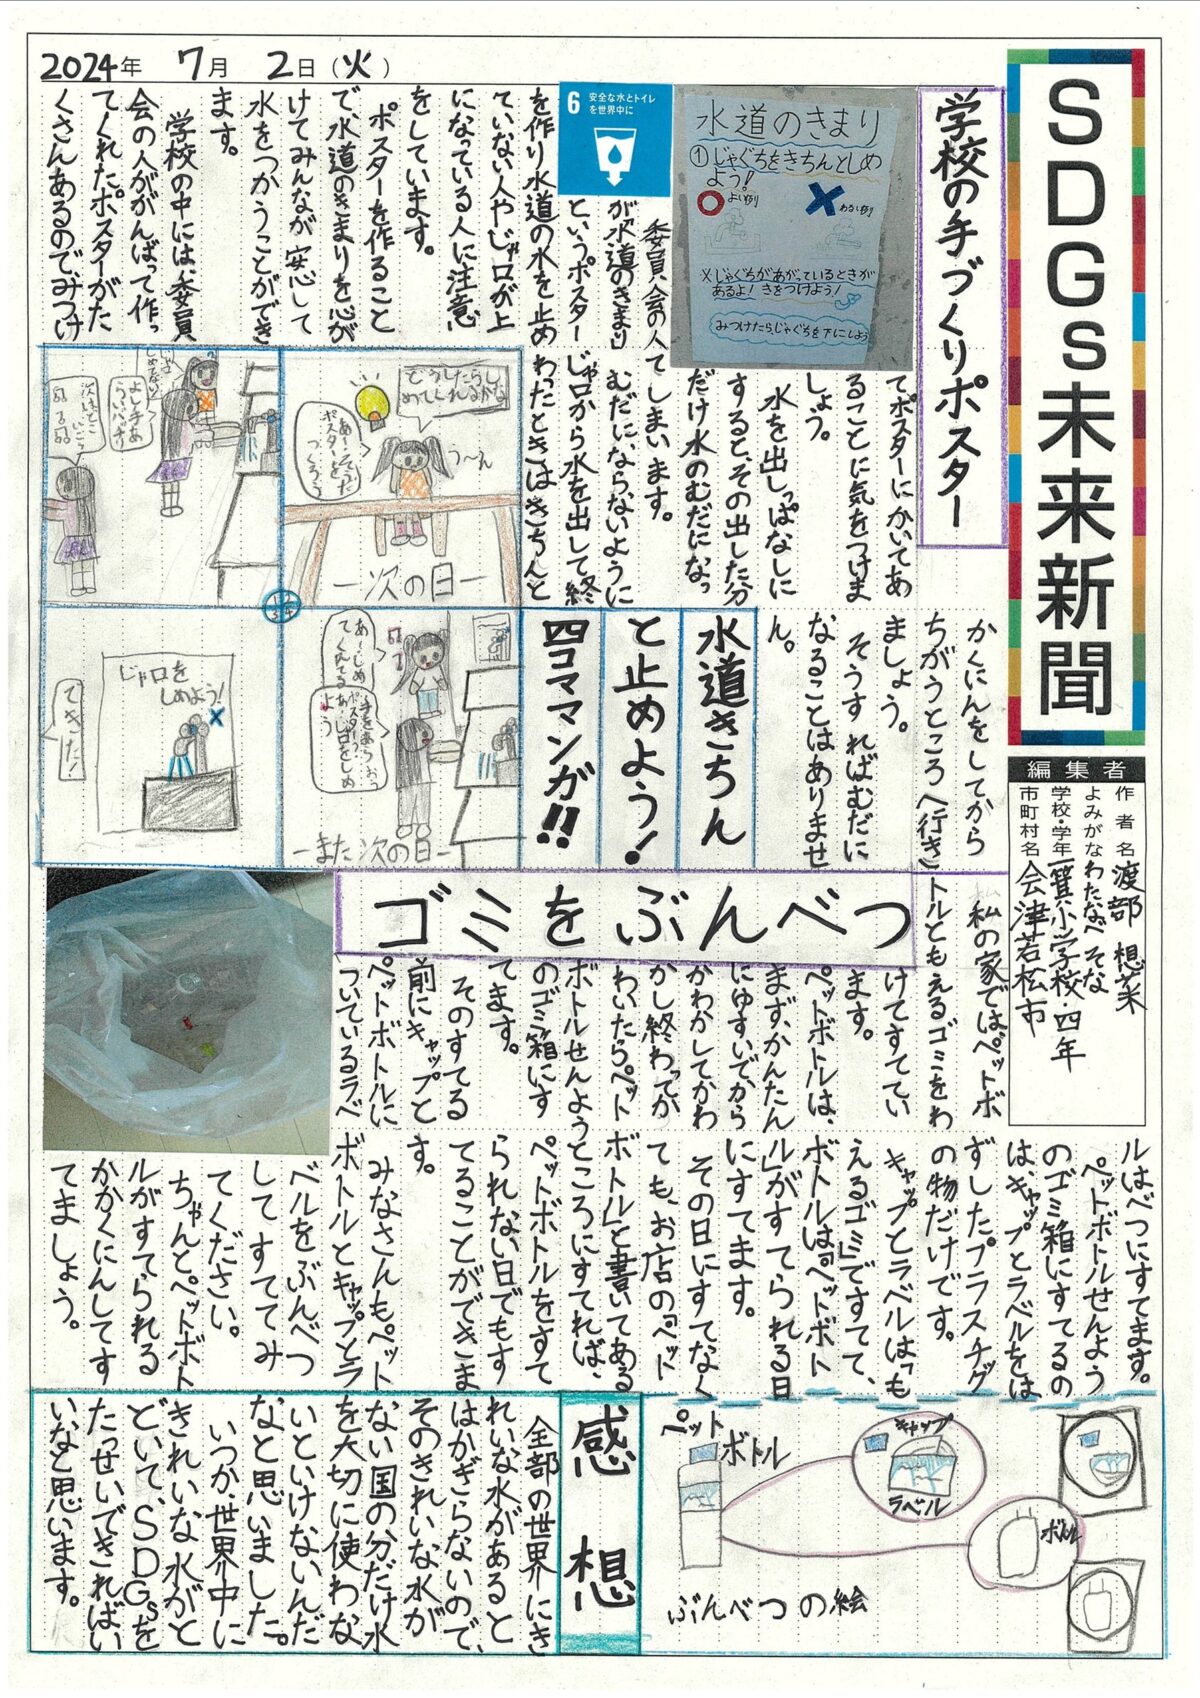 2024年 7月 2日(火)
SDGs未来新聞
編集者
作者名 渡部 想菜
よみがな わたなべ そな
学校・学年 一箕小学校・四年
市町村名 会津若松市
学校の手づくりポスター
水道のきまり
①じゃぐちをきちんとしめ
よう!
よい例
わるい例
※じゃぐちがあがっているときが
あるよ!きをつけよう!
みつけたら、じゃぐちを下にしよう
6 安全な水とトイレ
を世界中に
委員会の人
が「水道のきまり」
というポスター
を作り水道の水を止め
ていない人やじゃ口が上
になっている人に注意
をしています。
ポスターを作ること
で、水道のきまりを心が
けてみんなが安心して
水をつかうことができ
ます。
学校の中には、委員
会の人ががんばって作っ
てくれたポスターがた
くさんあるのでみつけ
てポスターにかいてあ
ることに気をつけま
しょう。
水を出しっぱなしに
すると、その出した分
だけ水のむだになっ
てしまいます。
むだにならないように
じゃ口から水を出して終
わったときはきちんと
かくにんをしてから
ちがうところへ行き
ましょう。
そうすればむだに
なることはありませ
ん。
水道きちん
と止めよう!
四コママンガ!!
どうしたらし
めてくれるかな
う〜ん
あーそうだ
ポスターを
つくろう
―次の日―
じゃ口を
しめよう!
できた!
―また次の日―
ゴミをぶんべつ
私の家ではペットボ
トルともえるゴミをわ
けてすててい
ます。
ペットボトルは、
まず、かんたん
にゆすいでから
かわかしてかわ
かし終わってか
わいたらペット
ボトルせんよう
のゴミ箱にす
てます。
そのすてる
前にキャップと
ペットボトルに
ついているラベ
ルはべつにすてます。
ペットボトルせんよう
のゴミ箱にすてるの
は、キャップとラベルをは
ずしたプラスチック
の物だけです。
キャップとラベルは「も
えるゴミ」ですてて、
ボトルは「ペットボト
ル」がすてられる日
にすてます。
その日にすてなく
ても、お店の「ペット
ボトル」と書いてある
ところにすてれば、
ペットボトルをすて
られない日でもす
てることができま
す。
みなさんもペット
ボトルとキャップとラ
ベルをぶんべつ
してすててみ
てください。
ちゃんとペットボト
ルがすてられる
かかくにんしてす
てましょう。
ペットボトル
キャップ
ラベル
ボトル
ぶんべつの絵
感想
全部の世界にき
れいな水があると
はかぎらないので、
そのきれいな水が
ない国の分だけ水
を大切に使わな
いといけないんだ
なと思いました。
いつか、世界中に
きれいな水がと
どいて、SDGsを
たっせいできればい
いなと思います。